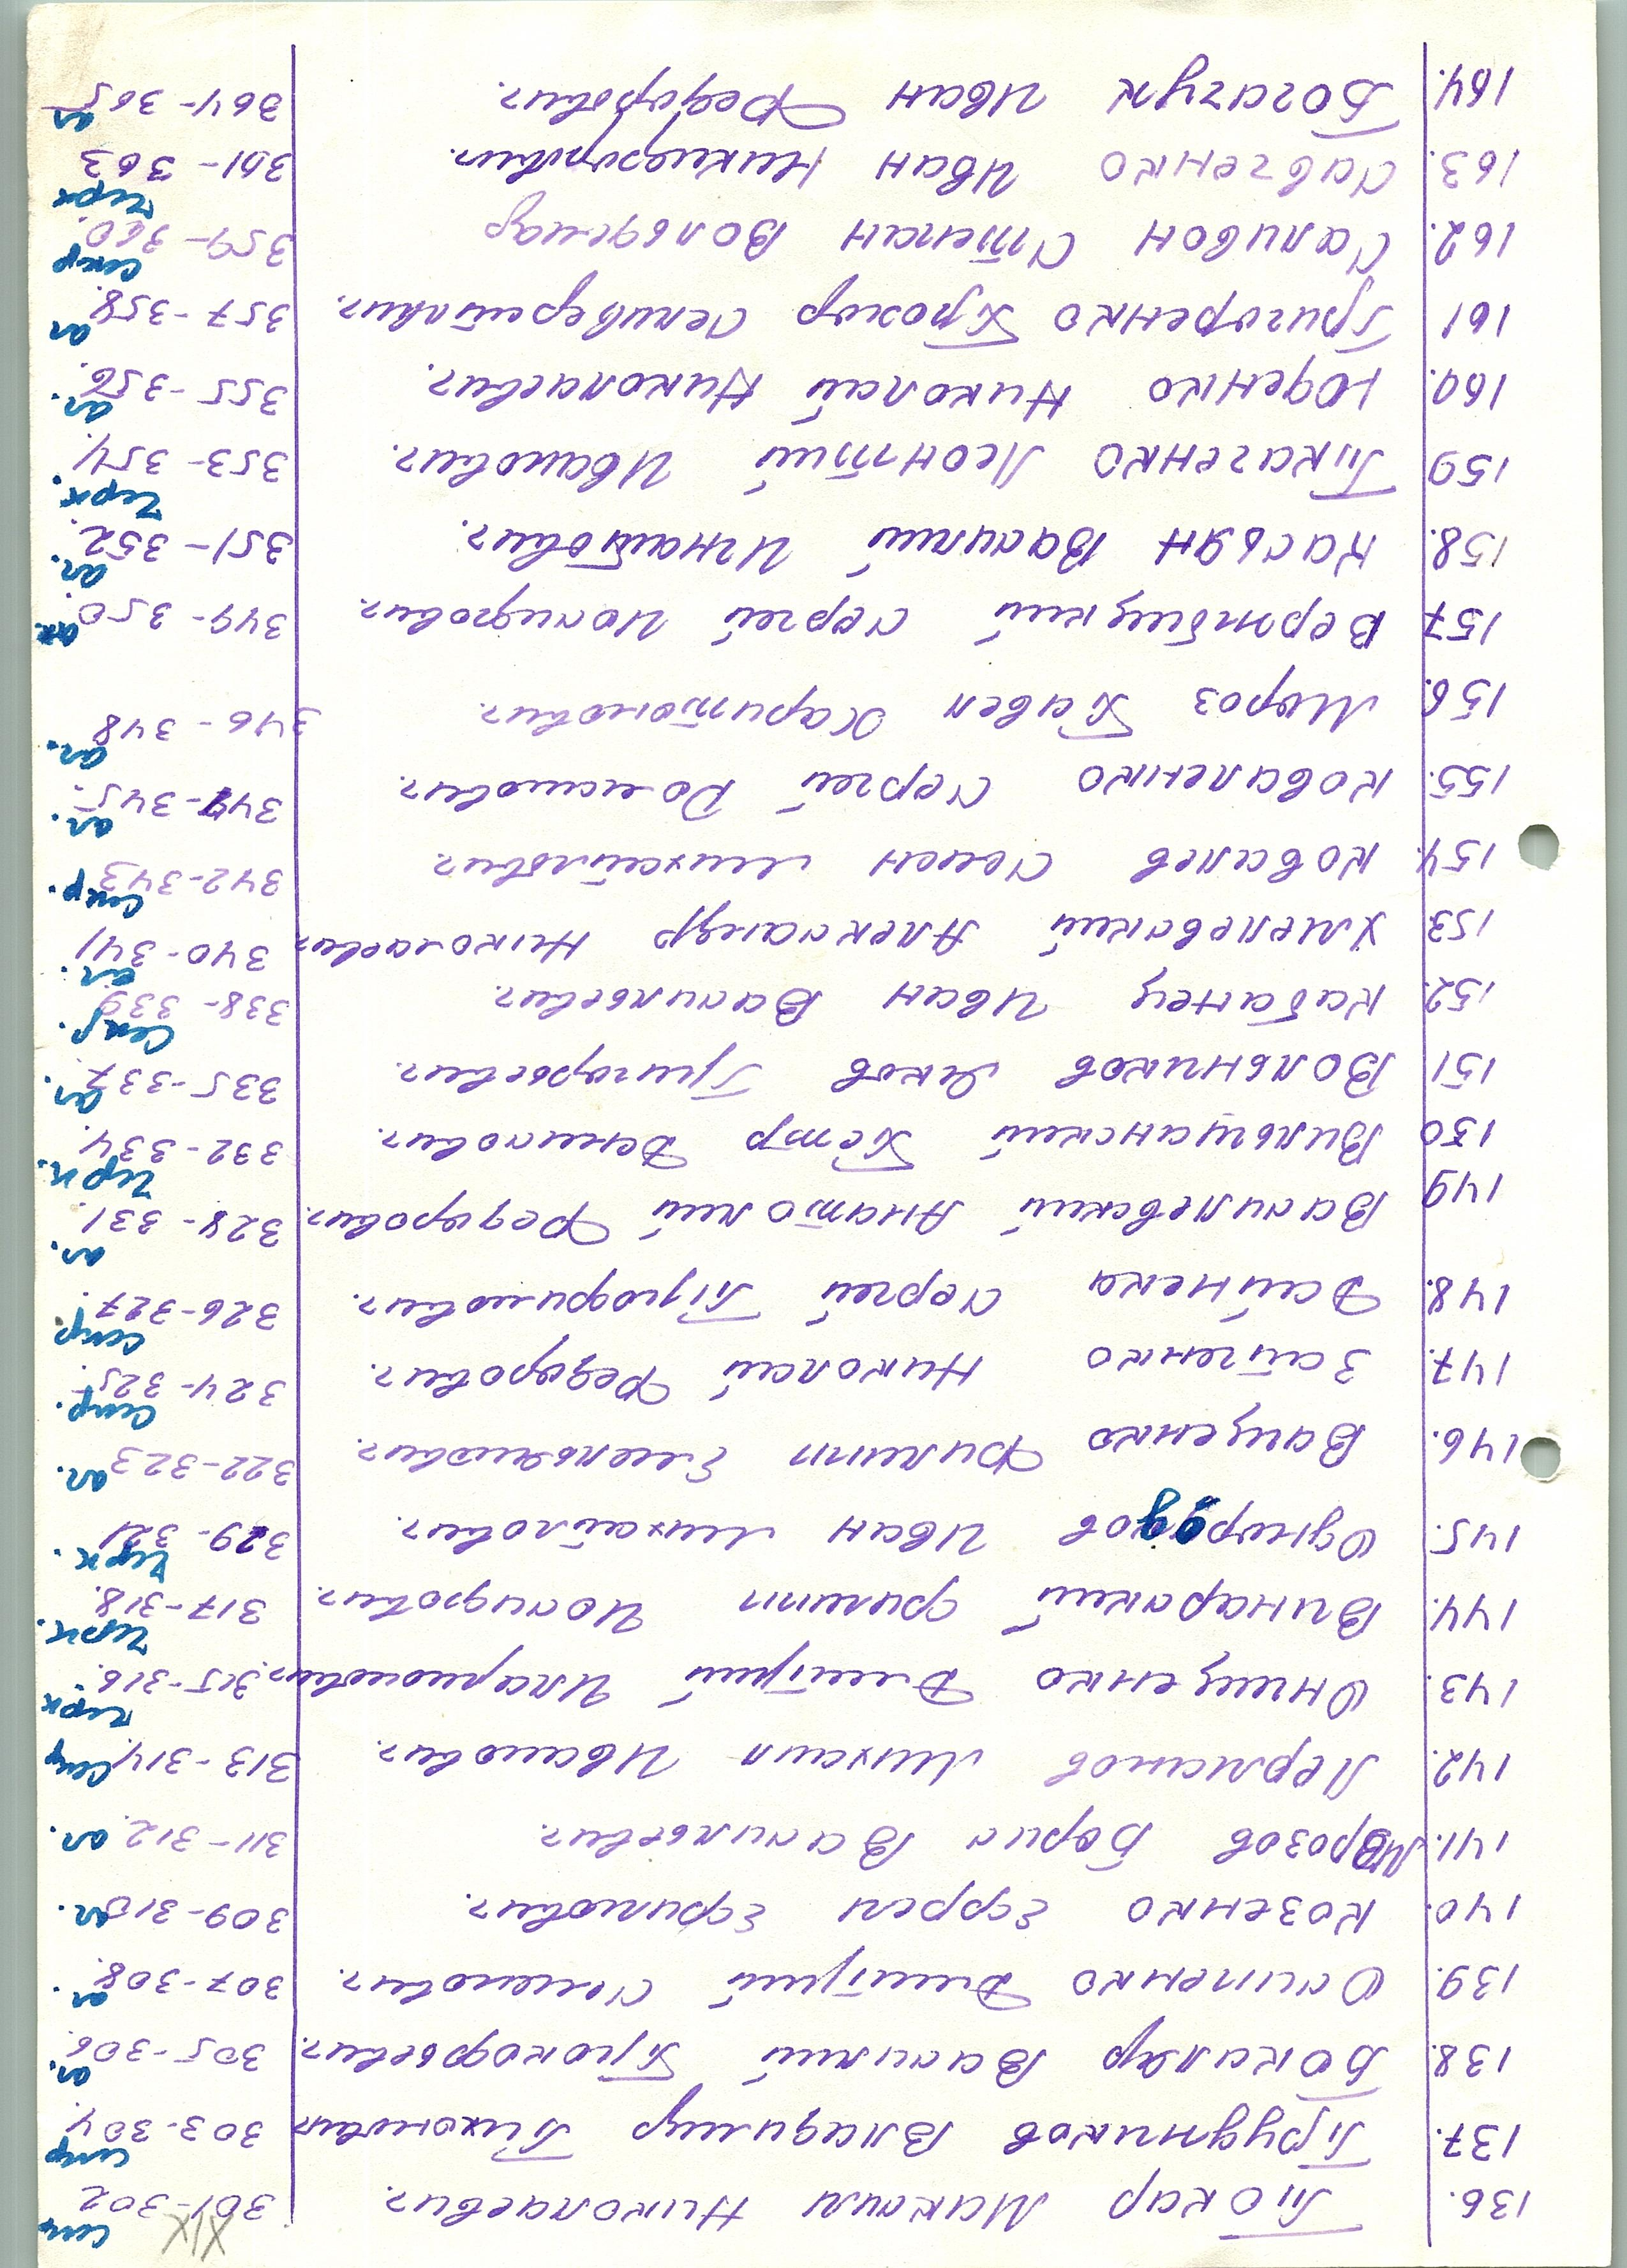 XIX
136. Токар Максим Николаевич. 301-302 секр
137. Трудников Владимир Тихонович 303-304. секр
138. Бокаляр Василий Прокофьевич. 305-306. ал.
139. Осипенко Дмитрий Семенович. 307-308. ал.
140. Козенко Ефрем Ефимович. 309-310 ал.
141. Морозов Борис Васильевич. 311-312. ал.
142. Лерманов Михаил Иванович. 313-314. секр
143. Онищенко Дмитрий Иларионович. 315-316. черк
144. Винарский Филипп Исидорович. 317-318. черк.
145. Однородов Иван Михайлович. 329-321 черк.
146. Ващенко Филипп Емельянович. 322-323 ал.
147. Зайченко Николай Федорович. 324-325 секр.
148. Дейнека Сергей Трофимович. 326-327. секр
149 Василевский Анатолий Федорович. 328-331. ал.
150 Вильшанский Петр Денисович. 332-334. черк.
151 Вольников Яков Григорьевич. 335-337 ал.
152. Кабанец Иван Васильевич. 338-339 секр.
153. Хмелевский Александр Николаевич 340-341 ал.
154. Ковалев Семен Михайлович 342-343 секр.
155. Коваленко Сергей Романович. 344-345. ал.
156. Мороз Павел Харитонович. 346-348 ал.
157 Вермбицкий Сергей Исидорович. 349-350 ал.
158. Касьян Василий Игнатович. 351-352. ал.
159 Ткаченко Леонтий Иванович. 353-354. черк.
160. Юденко Николай Николаевич. 355-356. ал.
161 Григоренко Прохор Селиверстович. 357-358. ал
162. Саливон Степан Вольдемар 359-360. секр
163. Савченко Иван Никифорович. 361-363 черк
164. Богачук Иван Федорович. 364-365 ал